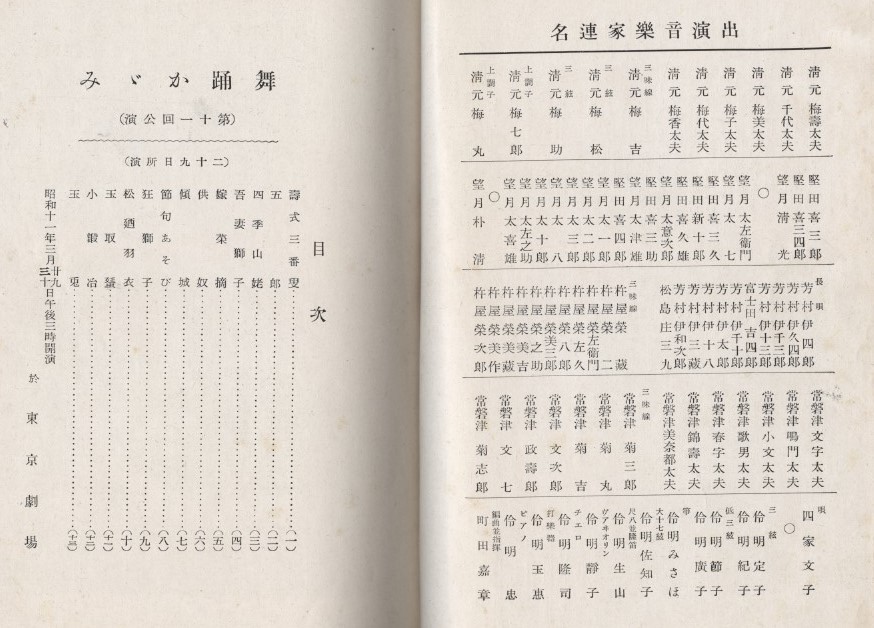 出演音樂家連名
清元 梅壽太夫
清元 千代太夫
清元 梅美太夫
清元 梅子太夫
清元 梅代太夫
清元 梅香太夫
三味線
清元 梅吉
三絃
清元 梅松
三絃
清元 梅助
上調子
清元 梅七郎
上調子
清元 梅丸
堅田 喜三郎
堅田 喜三四郎
望月 清光
○
望月 太左衛門
望月 太七
堅田 喜三久
堅田 新十郎
堅田 喜久雄
望月 太意次郎
堅田 喜三助
望月 太津雄
堅田 喜四郎
望月 太一郎
望月 太二郎
望月 太三郎
望月 太八
望月 太十郎
望月 太左之助
望月 太喜雄
○
望月 朴清
長唄
芳村 伊四郎
芳村 伊久四郎
芳村 伊千三郎
芳村 伊十三郎
富士田 吉四郎
芳村 伊千十郎
芳村 伊太郎
芳村 伊十八
芳村 伊三藏
芳村 伊和次郎
松島 庄三九
三味線
杵屋 榮藏
杵屋 榮二
杵屋 榮左衛門
杵屋 榮左久
杵屋 榮八郎
杵屋 榮美三郎
杵屋 榮之助
杵屋 榮美藏
杵屋 榮美作
杵屋 榮次郎
常磐津 文字太夫
常磐津 鳴門太夫
常磐津 小文太夫
常磐津 歌男太夫
常磐津 春字太夫
常磐津 錦壽太夫
常磐津 美奈都太夫
三味線
常磐津 菊三郎
常磐津 菊丸
常磐津 菊吉
常磐津 文次郎
常磐津 政壽郎
常磐津 文七
常磐津 菊志郎
唄
四家文子
○
三絃
伶明定子
伶明紀子
低三絃
伶明節子
箏
伶明廣子
大十七絃
伶明みさほ
伶明佐知子
尺八並隆笛
伶明生山
ヴァキオリン
伶明靜子
チエロ
伶明隆司
打樂器
伶明玉惠
ピアノ
伶明忠
編曲並指揮
町田嘉章
舞踊かゞみ
(第十一回公演)
(二十九日所演)
目次
壽式三番叟(一)
五郎(二)
四季山姥(三)
吾妻獅子(四)
嫁榮摘(五)
供奴(六)
傾城(七)
節句あそび(八)
狂獅子(九)
松廼羽衣(十)
玉取蜑(十一)
小鍛冶(十二)
玉兎(十三)
昭和十一年三月廿九日三十日午後三時開演
於東京劇場